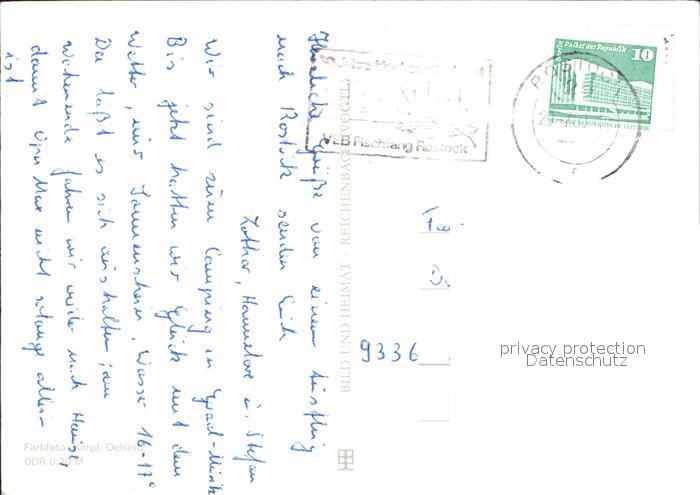 Herzliche Grüße von einem Ausflug
nach Rostock senden Euch
Lothar, Hannelore u. Stefan
Wir sind zum Camping in Graal-Müritz
Bis jetzt hatten wir Glück mit dem
Wetter, nur Sonnenschein, Wasser 16-17°
Da läßt es sich aushalten, am
Wochenende fahren wir wieder nach Hause,
damit Opa Max nicht solange allein
ist.
BILD UND HEIMAT · REICHENBACH (VOGTL)
VEB Fischfang Rostock
ROSTOCK
Berlin Palast der Republik 10
DEUTSCHE DEMOKRATISCHE REPUBLIK
9336
privacy protection
Datenschutz
Farbfoto: Karpf, Oelsnitz
DDR 0,20 M